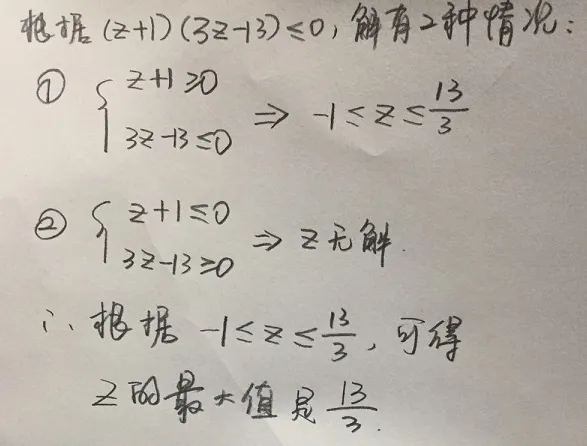 根据(z+1)(3z-13)≤0,解有2种情况:
① { z+1≥0
3z-13≤0 ⇒ -1≤z≤13/3
② { z+1≤0
3z-13≥0 ⇒ z无解.
∴ 根据 -1≤z≤13/3, 可得
z的最大值是13/3.